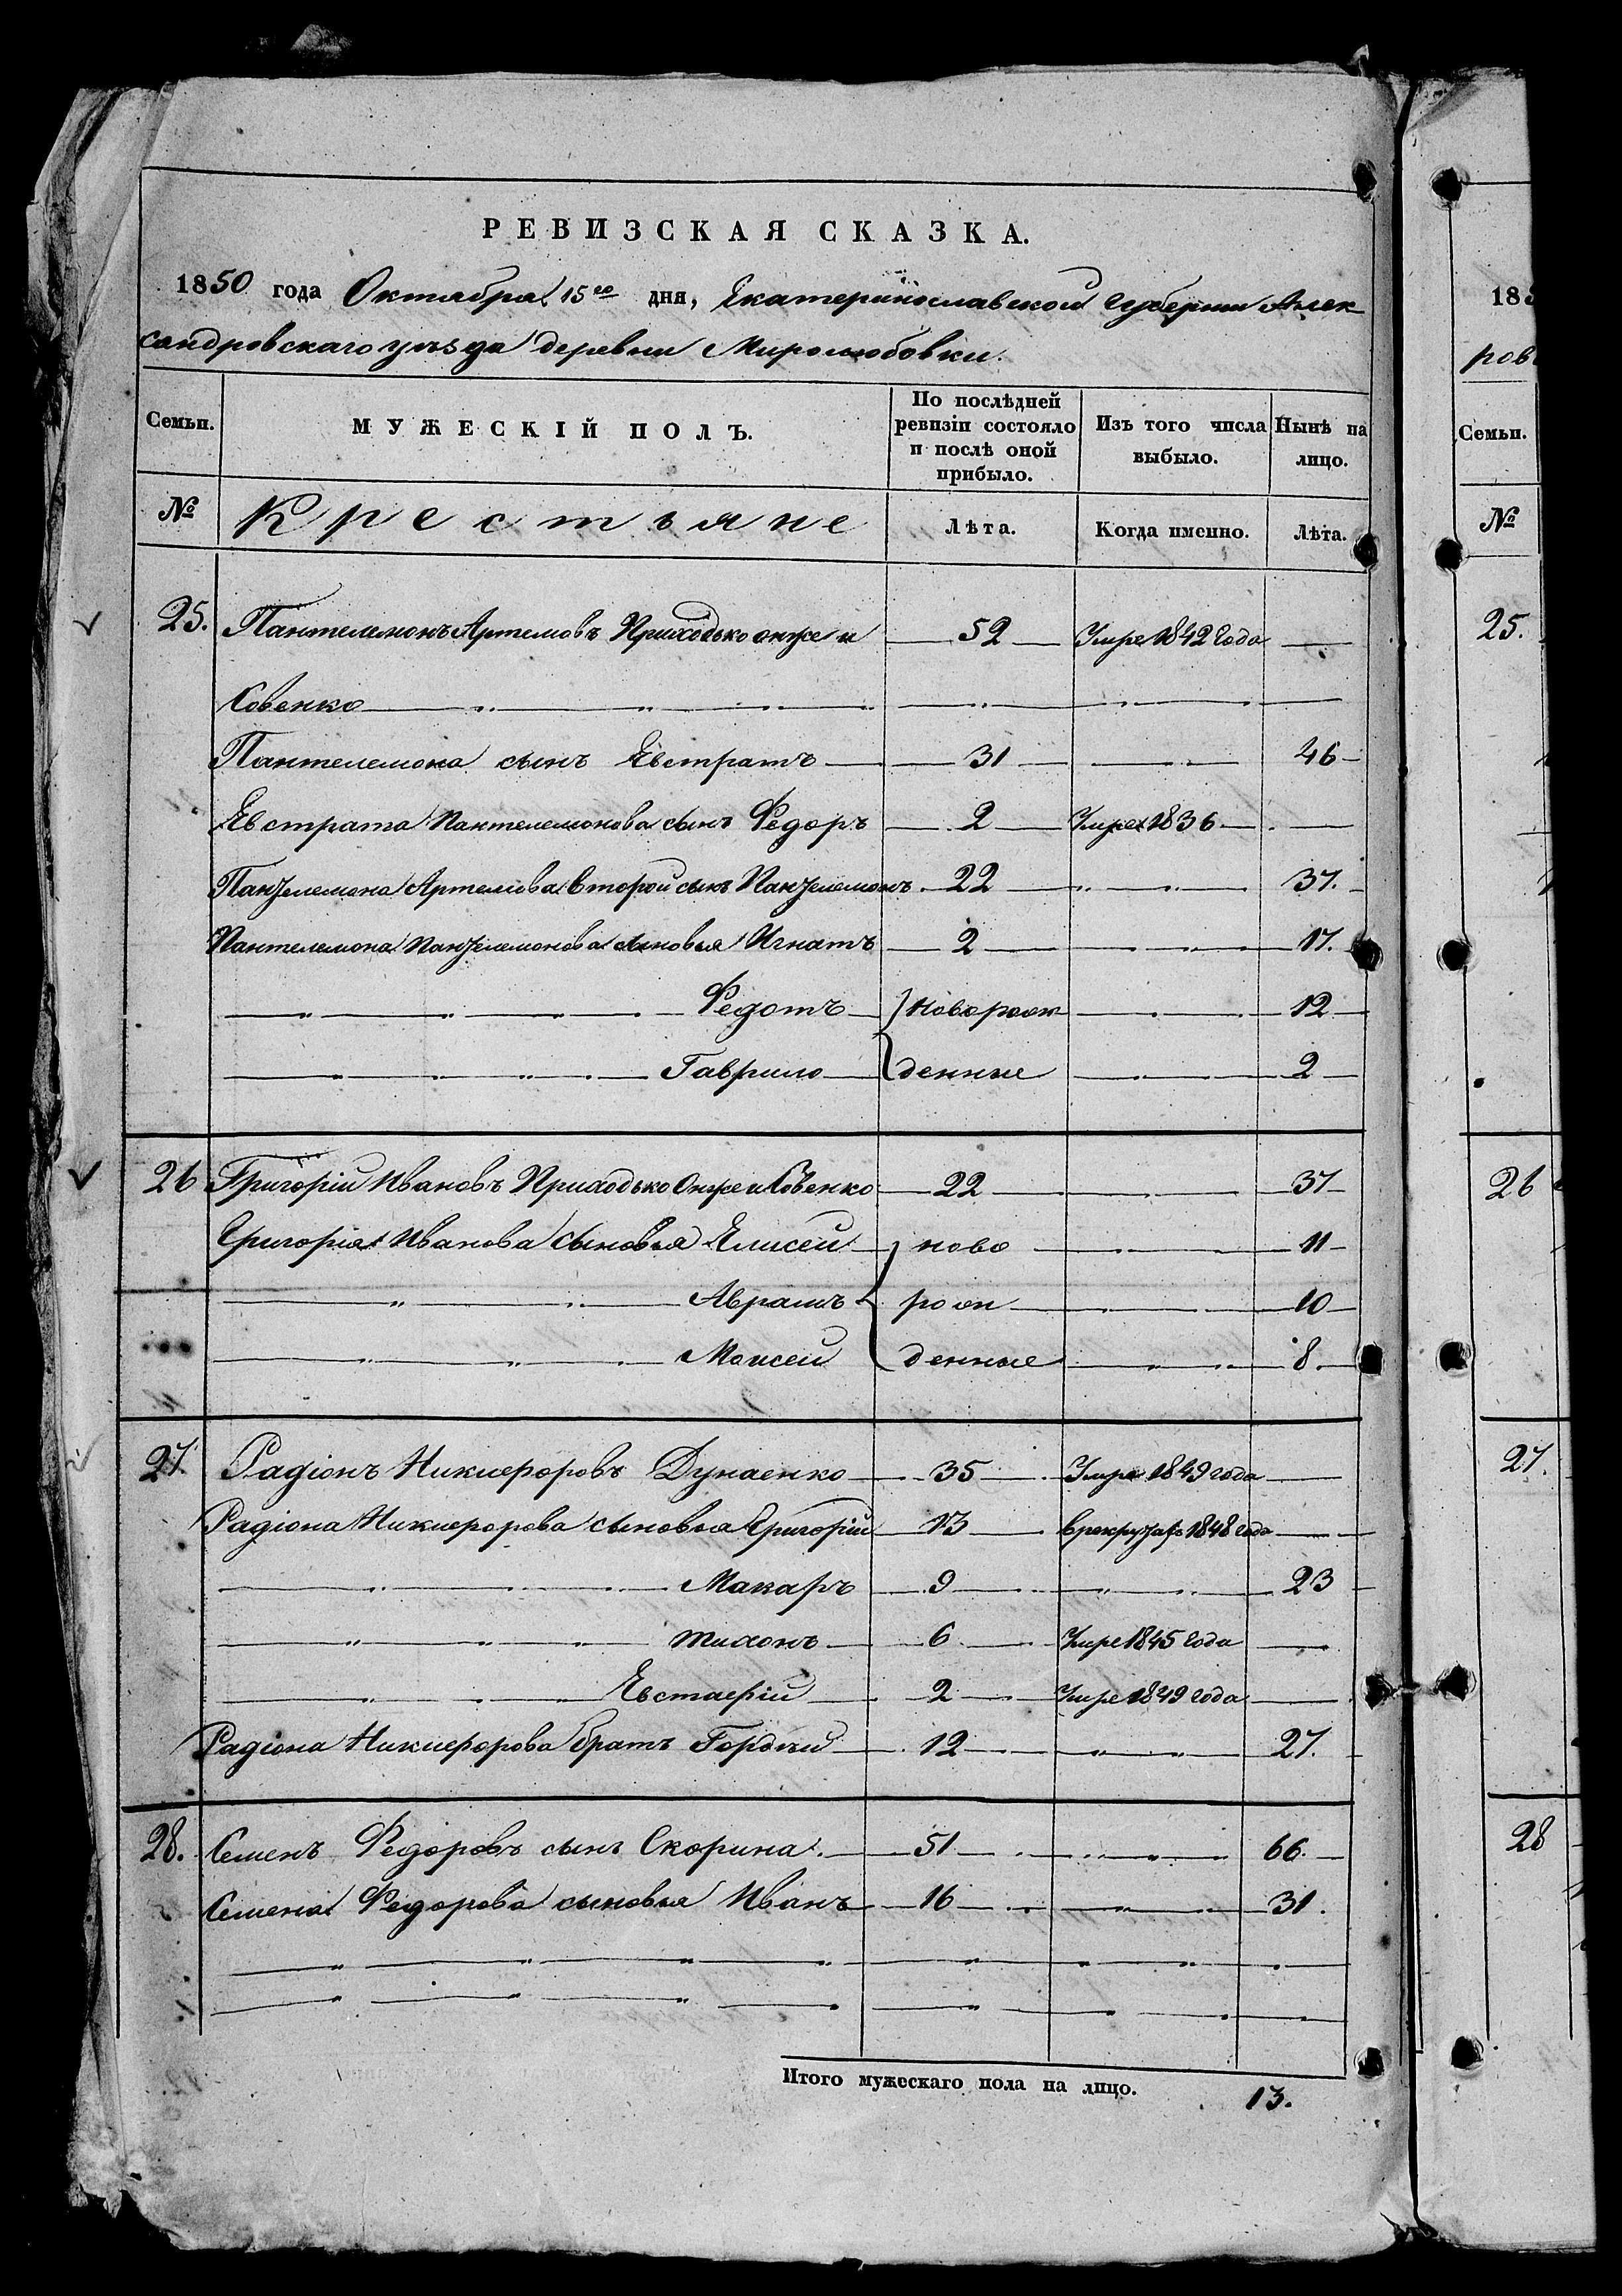 РЕВИЗСКАЯ СКАЗКА.
1850 года Октября 15го дня, Екатеринославской губернии Алек
сандровскаго уѣзда деревни Миролюбовки.
Семьи. МУЖЕСКІЙ ПОЛЪ. По послѣдней ревизіи состояло и послѣ оной прибыло. Изъ того числа выбыло. Нынѣ на лицо.
№ Крестьяне Лѣта. Когда именно. Лѣта.
25. Пантелемонъ Артемовъ Приходько онже и 52 Умре 1842 года
Совенко
Пантелемона сынъ Евстратъ 31 46
Евстрата Пантелемонова сынъ Федоръ 2 Умре 1836
Пантелемона Артемова второй сынъ Пантелемонъ 22 37.
Пантелемона Пантелемонова сыновья Игнатъ 2 17.
Федотъ новорож 12
Гаврило денные 2
26 Григорій Ивановъ Приходько Онже и Совенко 22 37
Григорія Иванова сыновья Елисей ново 11
Аврамъ рож 10
Моисей денные 8.
27. Радіонъ Никифоровъ Дунаенко 35 Умре 1849 года
Радіона Никифорова сыновья Григорій 13 в рекрутахъ 1848 года
Макаръ 9 23
Тихонъ 6 Умре 1845 года
Евстафій 2 Умре 1849 года
Радіона Никифорова братъ Гордѣй 12 27.
28. Семенъ Федоровъ сынъ Скорина. 51 66.
Семена Федорова сыновья Иванъ 16 31.
Итого мужескаго пола на лицо. 13.
185
ров
Семьи.
№
25.
26
27.
28